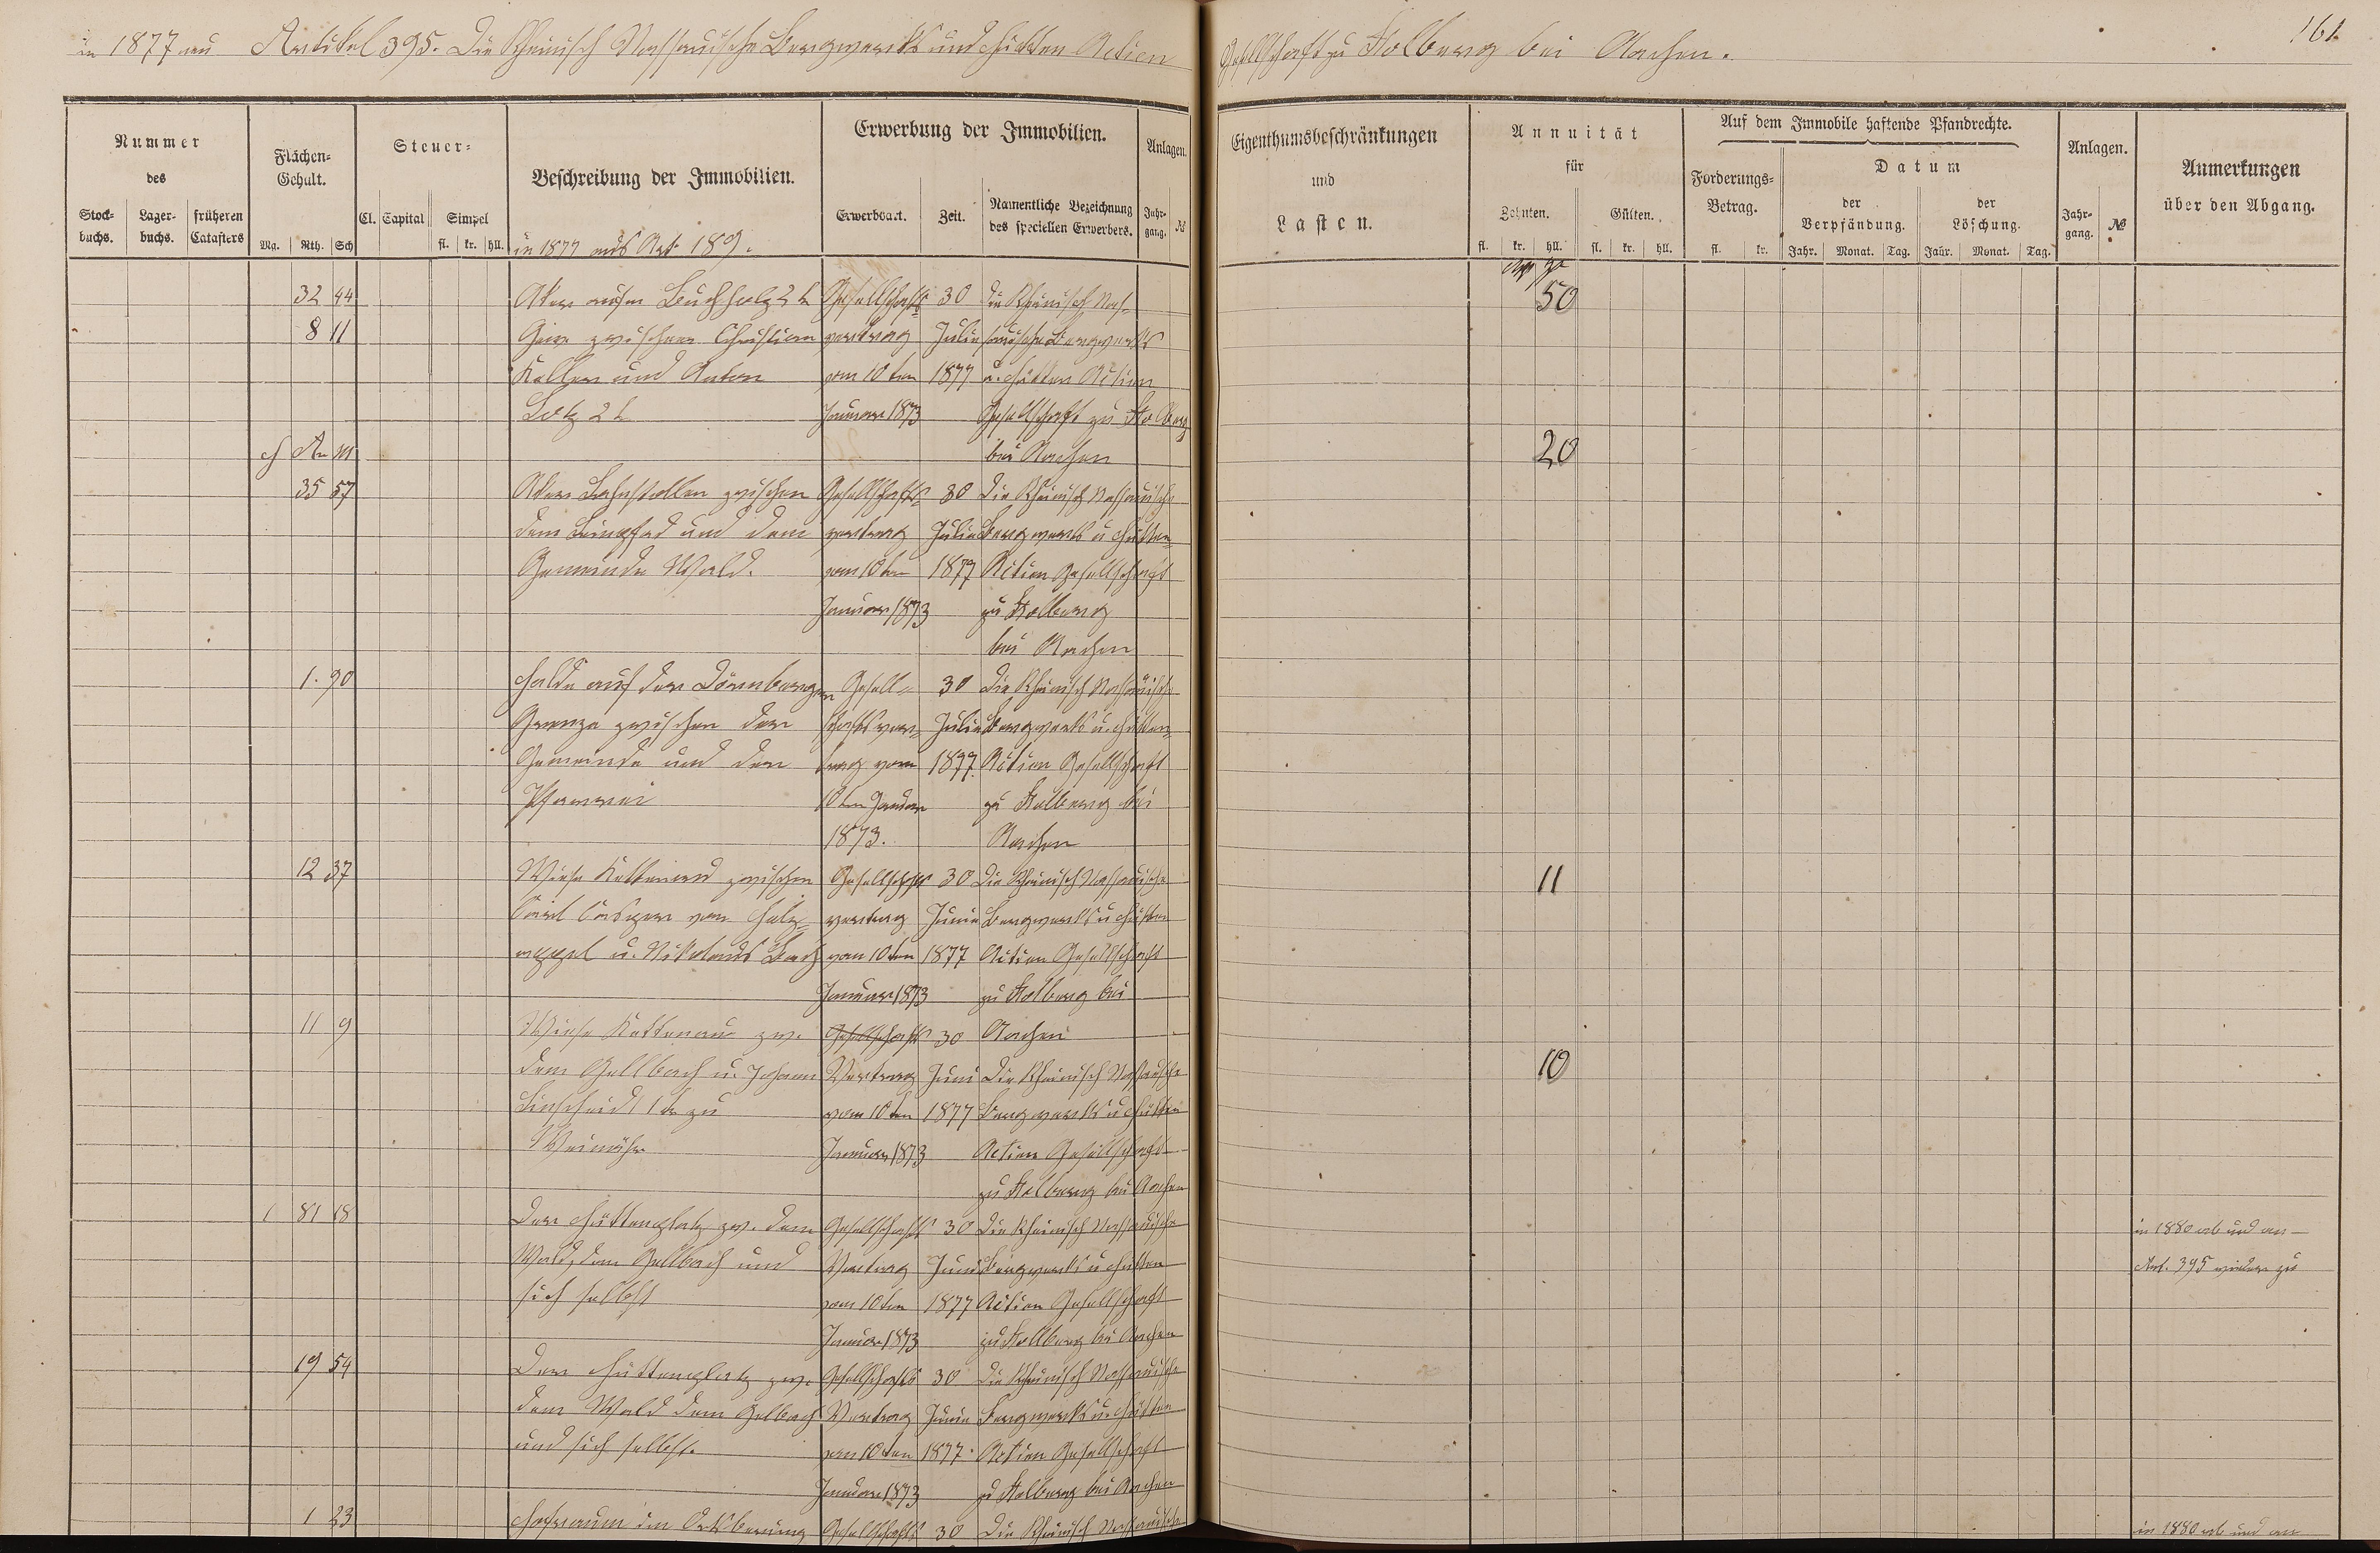 161.
in 1877 neu Artikel 395. Die Rheinisch Nassauische Bergwerks und Hütten Actien Gesellschaft zu Stolberg bei Aachen.
Nummer des
Stock-buchs. Lager-buchs. früheren Catasters
Flächen-Gehalt.
Mg. Rth. Sch
Steuer-
Cl. Capital Simpel
fl. kr. hll.
Beschreibung der Immobilien.
in 1877 aus Art. 189.
Erwerbung der Immobilien.
Erwerbsart. Zeit. Namentliche Bezeichnung des speciellen Erwerbers.
Anlagen.
Jahr-gang. №
Eigenthumsbeschränkungen und Lasten.
Annuität für
Zehnten. Gülten.
fl. kr. hll. fl. kr. hll.
Auf dem Immobile haftende Pfandrechte.
Forderungs-Betrag.
fl. kr.
Datum
der Verpfändung. der Löschung.
Jahr. Monat. Tag. Jahr. Monat. Tag.
Anlagen.
Jahr-gang. №
Anmerkungen über den Abgang.
32 44 Acker Buchholz 2 Gesellschafts- 30 die Rheinisch Nas- 50
8 11 zwischen Christian vertrag Julie sauische Bergwerks
Keller und Anton vom 10ten 1877 u. Hütten Actien
Lotz 2 Januar 1873 Gesellschaft zu Stolberg
H Ar M bei Aachen 20
35 57 Acker zwischen Gesellschafts- 30 die Rheinisch Nassauische
dem und dem vertrag Julie Bergwerks u Hütten-
Gemeinde Wald. vom 10ten 1877 Actien Gesellschaft
Januar 1873 zu Stolberg
bei Aachen
1. 90 Halde auf der Dörnberger Gesell- 30 die Rheinisch Nassauische
Grenze zwischen der schaftsver- Julie Bergwerks u. Hütten-
Gemeinde und der trag vom 1877. Actien Gesellschaft
Pfarrei 10ten Januar zu Stolberg bei
1873. Aachen
12 37 Wiese zwischen Gesellschafts 30 Die Rheinisch Nassauische 11
Carl Casper von Holz- vertrag Junie Bergwerks u Hütten
appel u. Nikolaus Bach vom 10ten 1877 Actien Gesellschaft
Januar 1873 zu Stolberg bei
11 9 Wiese Kattenau zw. Gesellschafts 30 Aachen
dem Gellbach u. Johann Vertrag Juni Die Rheinisch Nassauische 10
Linscheid 1r zu vom 10ten 1877 Bergwerks u Hütten
Weinähr Januar 1873 Actien Gesellschaft
zu Stolberg bei Aachen
1 81 18 Der Hüttenplatz zw. dem Gesellschafts 30 Die Rheinisch Nassauische in 1880 ab und an
Wald, dem Gellbach und Vertrag Juni Bergwerks u Hütten Art. 395 wieder zu
sich selbst vom 10ten 1877 Actien Gesellschaft
Januar 1873 zu Stollberg bei Aachen
19 54 Der Hüttenplatz zw. Gesellschafts 30 Die Rheinisch Nassauische
dem Wald dem Gelbach Vertrag Junie Bergwerks u. Hütten
und sich selbst. vom 10ten 1877. Actien Gesellschaft
Januar 1873 zu Stolberg bei Aachen
1 23 Hofraum im Ortsbering Gesellschafts 30 Die Rheinisch Nassauische in 1880 ab und an